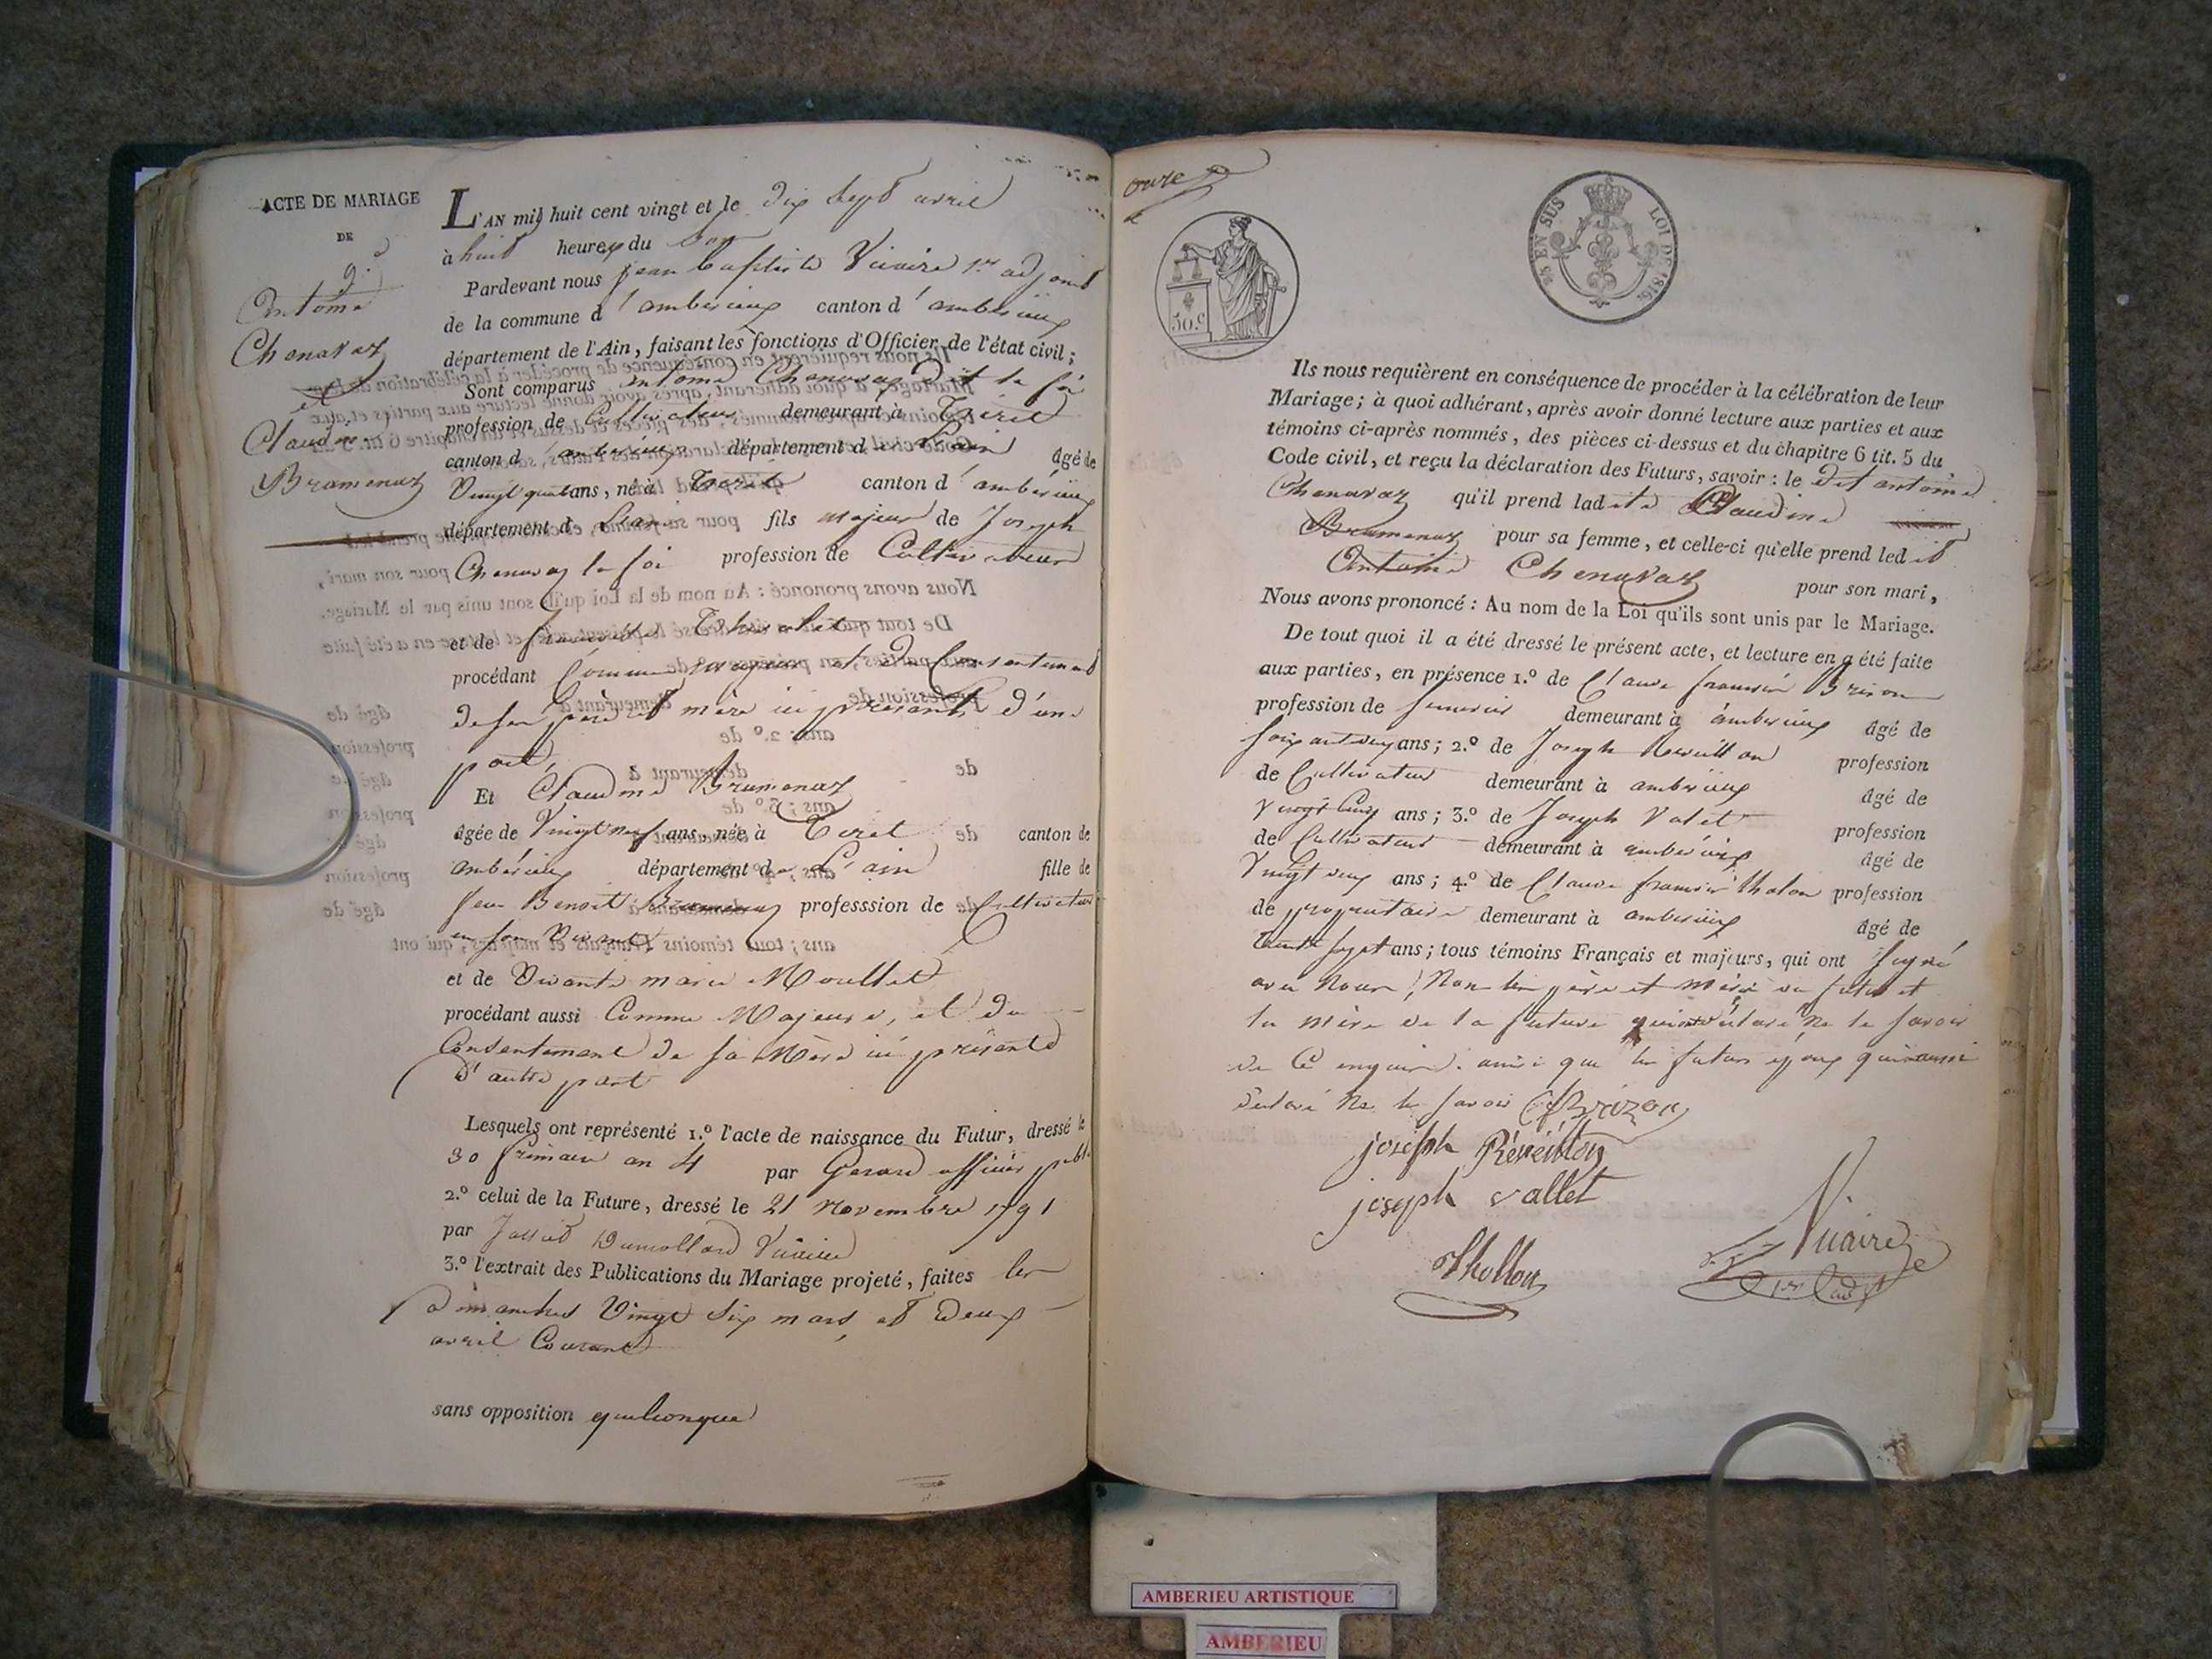 ACTE DE MARIAGE
DE
9.e
Antoine
Chenavaz
et
Claudine
Bramenaz
L'AN mil huit cent vingt et le dix sept avril
à huit heures du soir
Pardevant nous jean baptiste Vicaire 1er adjoint
de la commune d'ambérieux canton d'ambérieux
département de l'Ain, faisant les fonctions d'Officier de l'état civil;
Sont comparus antoine Chenavaz dit la foi
profession de Cultivateur demeurant à Tiret
canton d'ambérieux département d L'ain âgé de
Vingt quatre ans, né à Tiret canton d'ambérieux
département d L'ain fils majeur de Joseph
Chenavaz la foi profession de Cultivateur
et de
procédant Comme majeur et du Consentement
de ses père et mère ici présents d'une
part,
Et Claudine Bramenaz
âgée de Vingt neuf ans, née à Tiret canton de
ambérieux département de L'ain fille de
feu Benoit Bramenaz professsion de Cultivateur
en son Vivant
et de Vivante marie Moullet
procédant aussi Comme Majeure, et du
Consentement de sa Mère ici présente
d'autre part
Lesquels ont représenté 1.º l'acte de naissance du Futur, dressé le
30 frimaire an 4 par Gerard officier publ.
2.º celui de la Future, dressé le 21 Novembre 1791
par Dumollard Vicaire
3.º l'extrait des Publications du Mariage projeté, faites les
dimanches Vingt Six mars, et Deux
avril Courant
sans opposition quelconque
50.c
25 EN SUS LOI DE 1816.
Ils nous requièrent en conséquence de procéder à la célébration de leur
Mariage; à quoi adhérant, après avoir donné lecture aux parties et aux
témoins ci-après nommés, des pièces ci-dessus et du chapitre 6 tit. 5 du
Code civil, et reçu la déclaration des Futurs, savoir: le dit antoine
Chenavaz qu'il prend ladite Claudine
Bramenaz pour sa femme, et celle-ci qu'elle prend ledit
Antoine Chenavaz pour son mari,
Nous avons prononcé: Au nom de la Loi qu'ils sont unis par le Mariage.
De tout quoi il a été dressé le présent acte, et lecture en a été faite
aux parties, en présence 1.º de Claude françois Brison
profession de demeurant à ambérieux âgé de
soixante ans; 2.º de Joseph Reveillon profession
de Cultivateur demeurant à ambérieux âgé de
vingt Cinq ans; 3.º de Joseph Valet profession
de Cultivateur demeurant à ambérieux âgé de
Vingt ans; 4.º de Claude françois tholon profession
de propriétaire demeurant à ambérieux âgé de
trente sept ans; tous témoins Français et majeurs, qui ont signé
avec Nous, Non les père et mère du futur et
la mère de la future qui ont déclaré ne le savoir
de ce enquis. ainsi que les futurs époux qui ont aussi
déclaré Ne le savoir Brizon
joseph Réveillon
joseph vallet
Thollon
Vicaire
1er adjt
AMBERIEU ARTISTIQUE
AMBERIEU